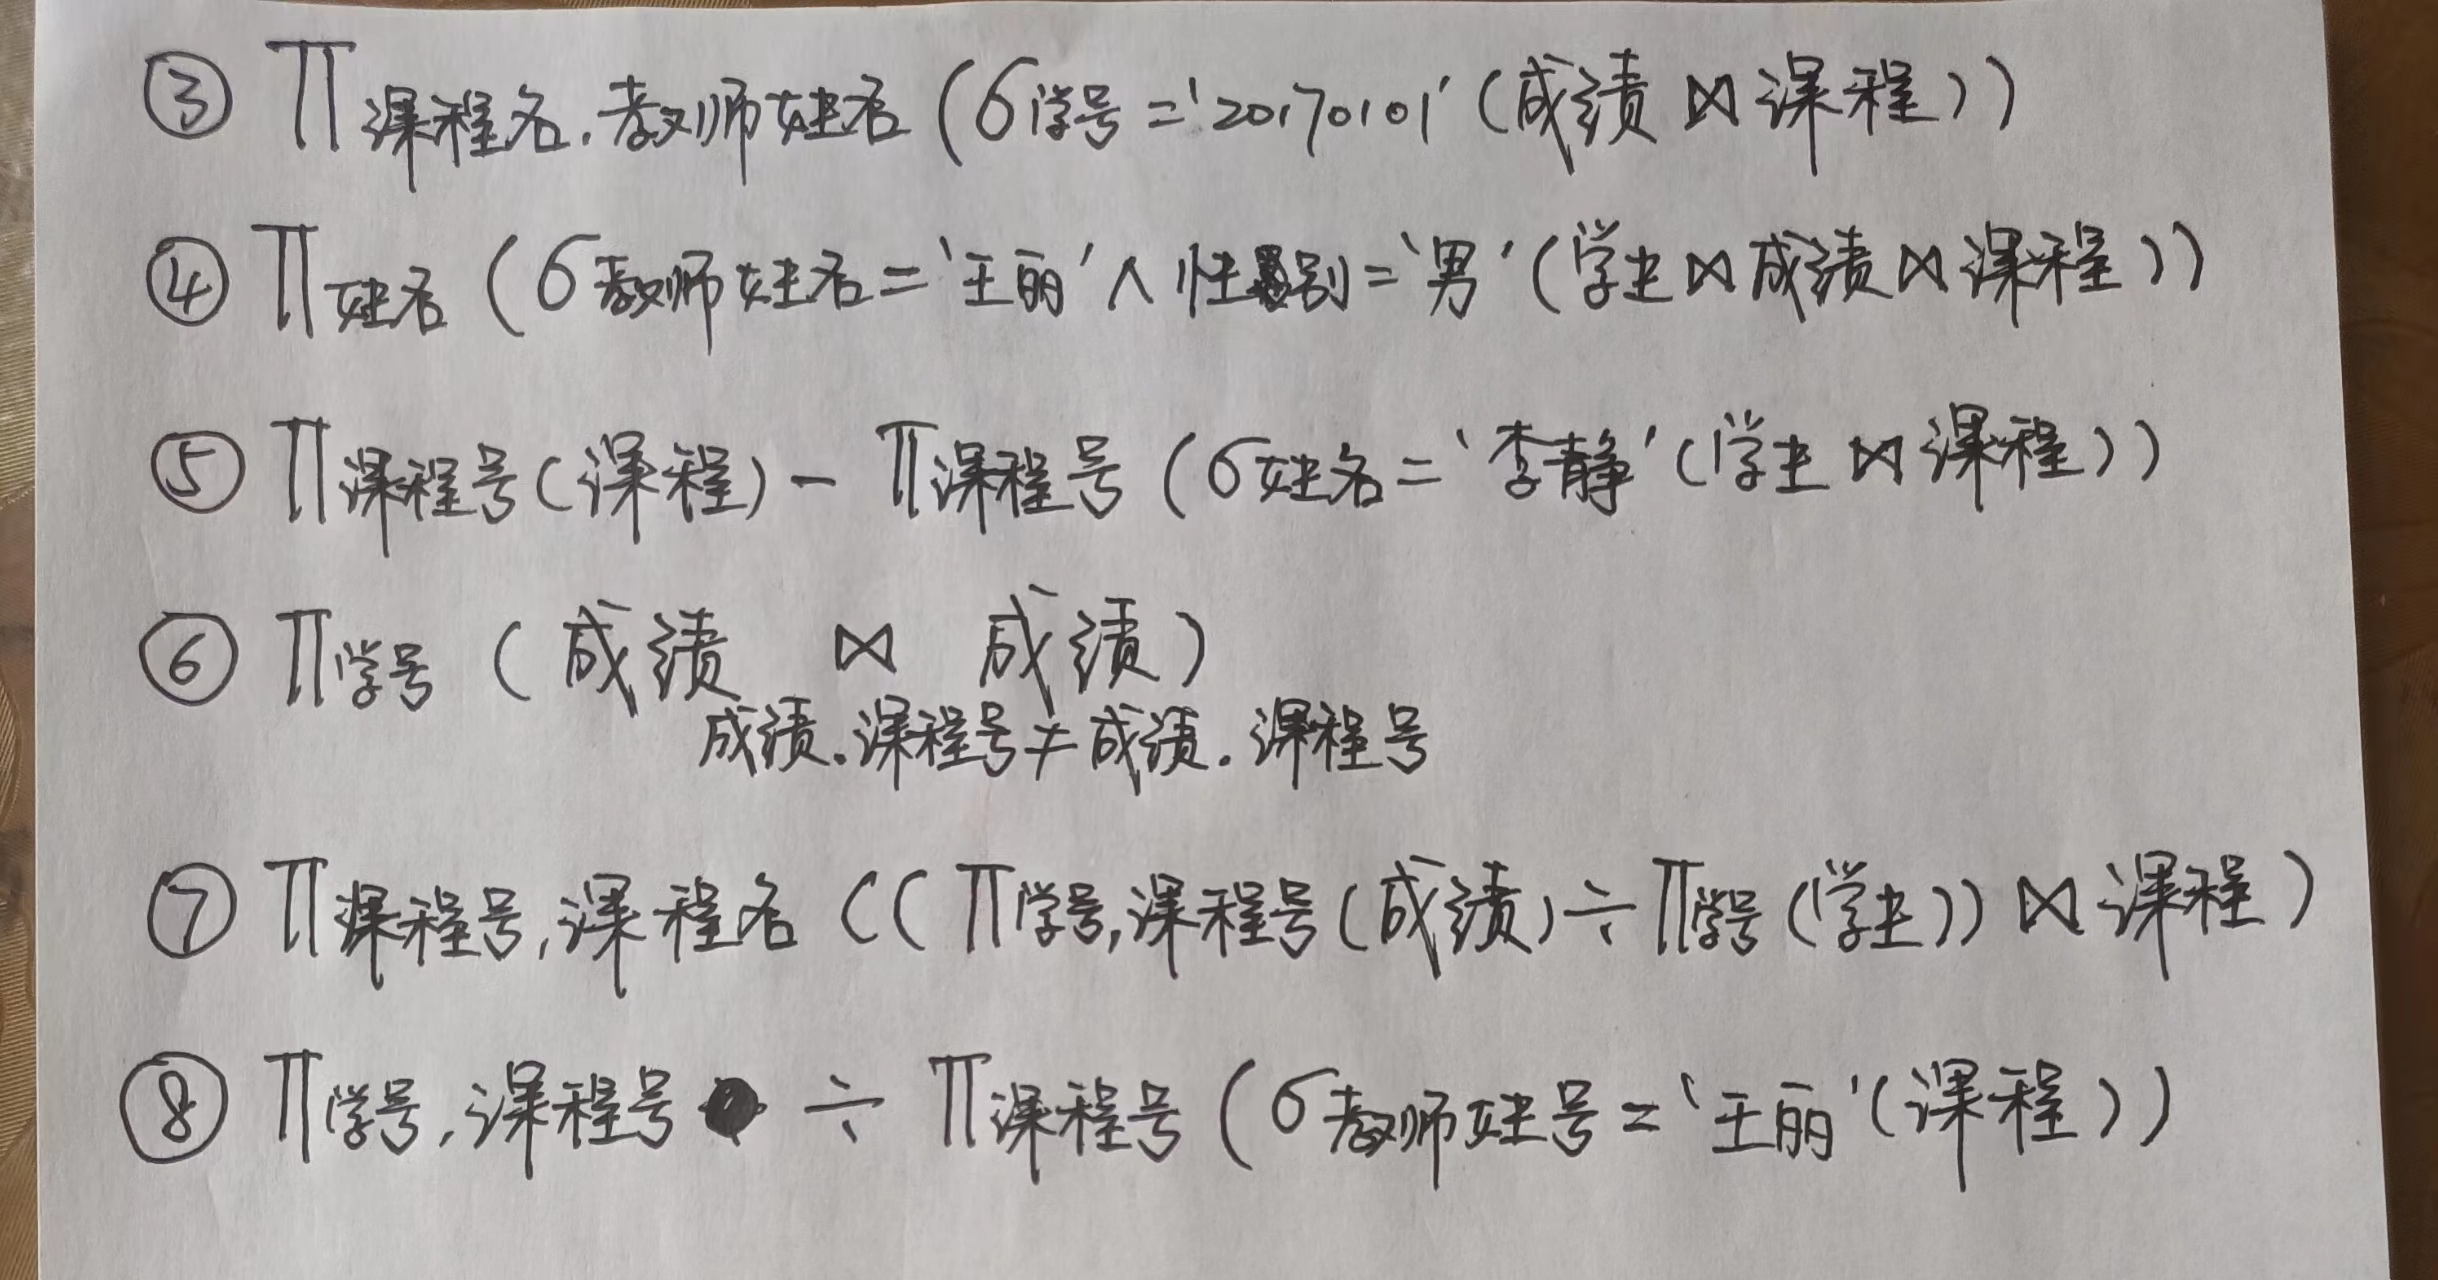 ③ Π课程名.教师姓名(σ学号='20170101'(成绩⋈课程))
④ Π姓名(σ教师姓名='王丽'∧性别='男'(学生⋈成绩⋈课程))
⑤ Π课程号(课程)-Π课程号(σ姓名='李静'(学生⋈课程))
⑥ Π学号(成绩 ⋈ 成绩)
成绩.课程号≠成绩.课程号
⑦ Π课程号,课程名((Π学号,课程号(成绩)÷Π学号(学生))⋈课程)
⑧ Π学号,课程号 ÷ Π课程号(σ教师姓号='王丽'(课程))